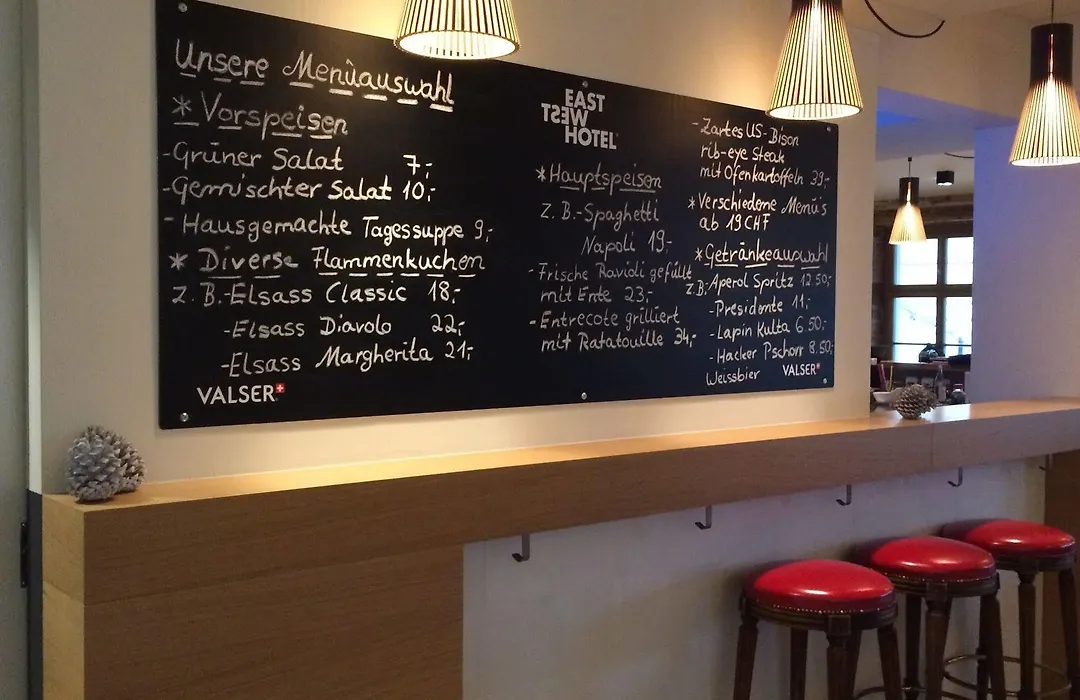 Unsere Menüauswahl
* Vorspeisen
- Grüner Salat 7,-
- Gemischter Salat 10,-
- Hausgemachte Tagessuppe 9,-
* Diverse Flammenkuchen
z.B.- Elsass Classic 18,-
- Elsass Diavolo 22,-
- Elsass Margherita 21,-
VALSER
EAST
WEST
HOTEL
* Hauptspeisen
z.B.- Spaghetti
Napoli 19,-
- Frische Ravioli gefüllt
mit Ente 23,-
- Entrecote grilliert
mit Ratatouille 34,-
- Zartes US-Bison
rib-eye Steak
mit Ofenkartoffeln 39,-
* Verschiedene Menü's
ab 19 CHF
* Getränkeauswahl
z.B: Aperol Spritz 12.50,-
- Presidente 11,-
- Lapin Kulta 6.50,-
- Hacker Pschorr 8.50,-
Weissbier
VALSER